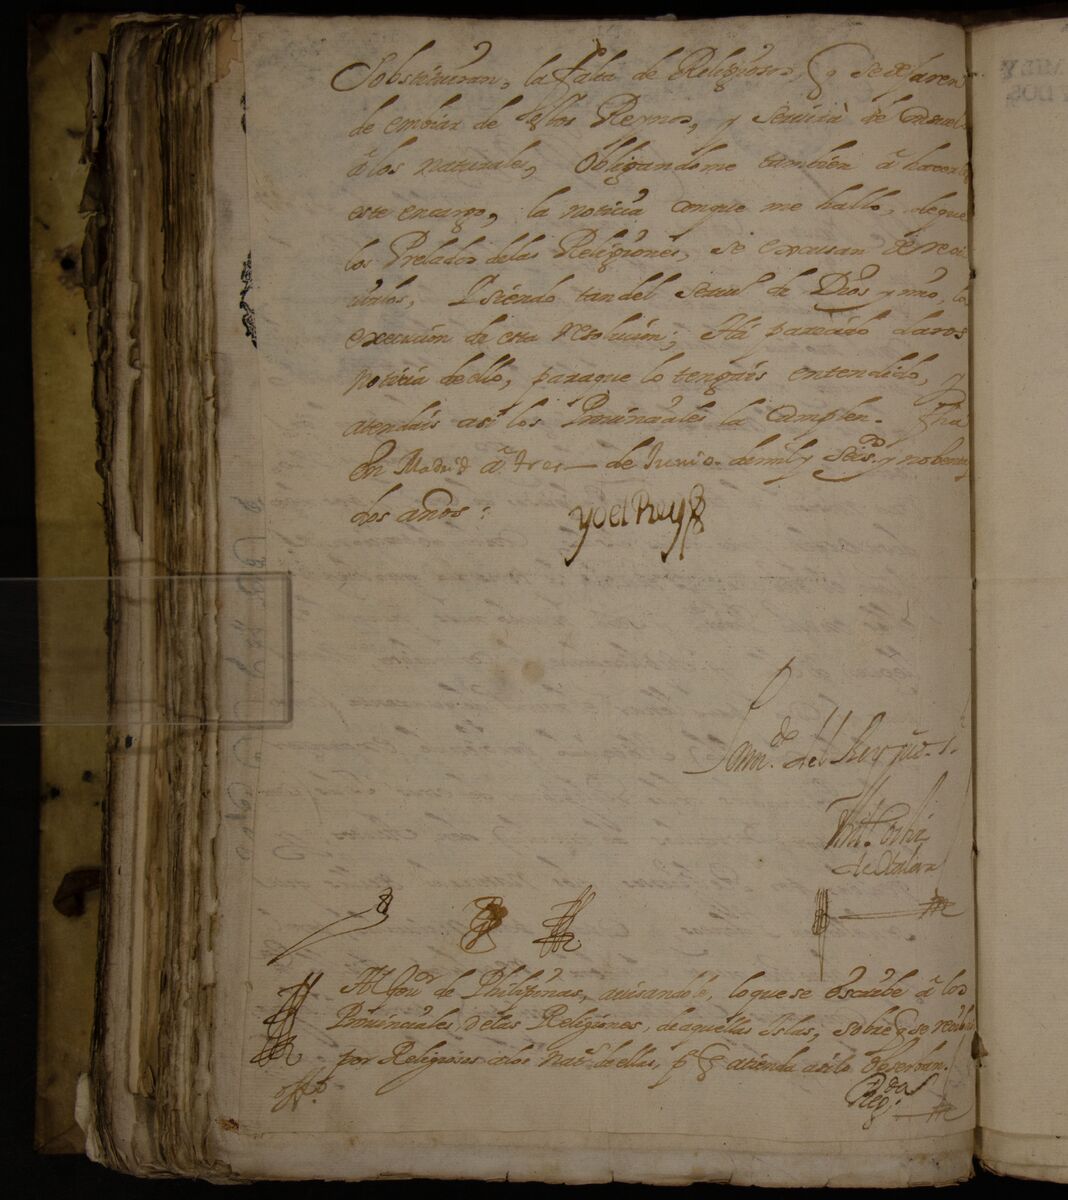 Sobstituiran, la falta de Religiosos, q se dejaren
de embiar de estos Reynos, y servira de consuelo
â los naturales, Obligandome tambien â hacerles
este encargo, la noticia conque me hallo, deque
los Prelados delas Religiones, se excusan de reci
uirlos, I siendo tan del seruº de Dios y mio, la
execucion de esta resolucion, Há parecido daros
noticia dello, paraque lo tengais entendido, y
atendais aq los Prouinciales la cumplan. fha
En Madrid â tres de Junio de mil y Seisº y nobenta y
dos años:
yo el Rey
Por mdº del Rey nrº sr.
Antº Ortiz
de Otalora
Al Gouºr de Philipinas, auisandole, lo que se escribe â los
Prouinciales, delas Religiones, de aquellas Islas, sobre q se reciban
por Religiosos alos natˢ dellas, pª q atienda asilo obserban.
offº